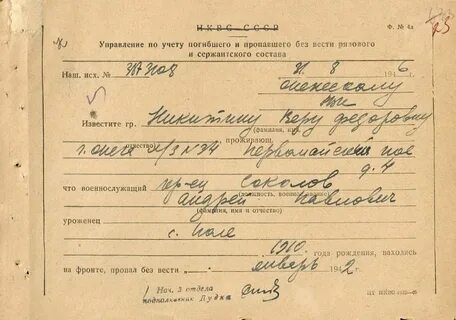 НКВС СССР
Ф. № 4а
23
Управление по учету погибшего и пропавшего без вести рядового
и сержантского состава
Наш. исх. № 31 8 1946 г.
Онежскому
Известите гр. Никитину Веру Федоровну
(фамилия, имя,
г. Онега л/з № 34 Первомайский пос
отчество) проживающ.
д. 4
что военнослужащий кр-ец Соколов
(должность, военное звание)
Андрей Павлович
(фамилия, имя и отчество)
уроженец
с. Поле
1910 года рождения, находясь
на фронте, пропал без вести январь 1942 г.
Нач. 3 отдела
подполковник Дудка